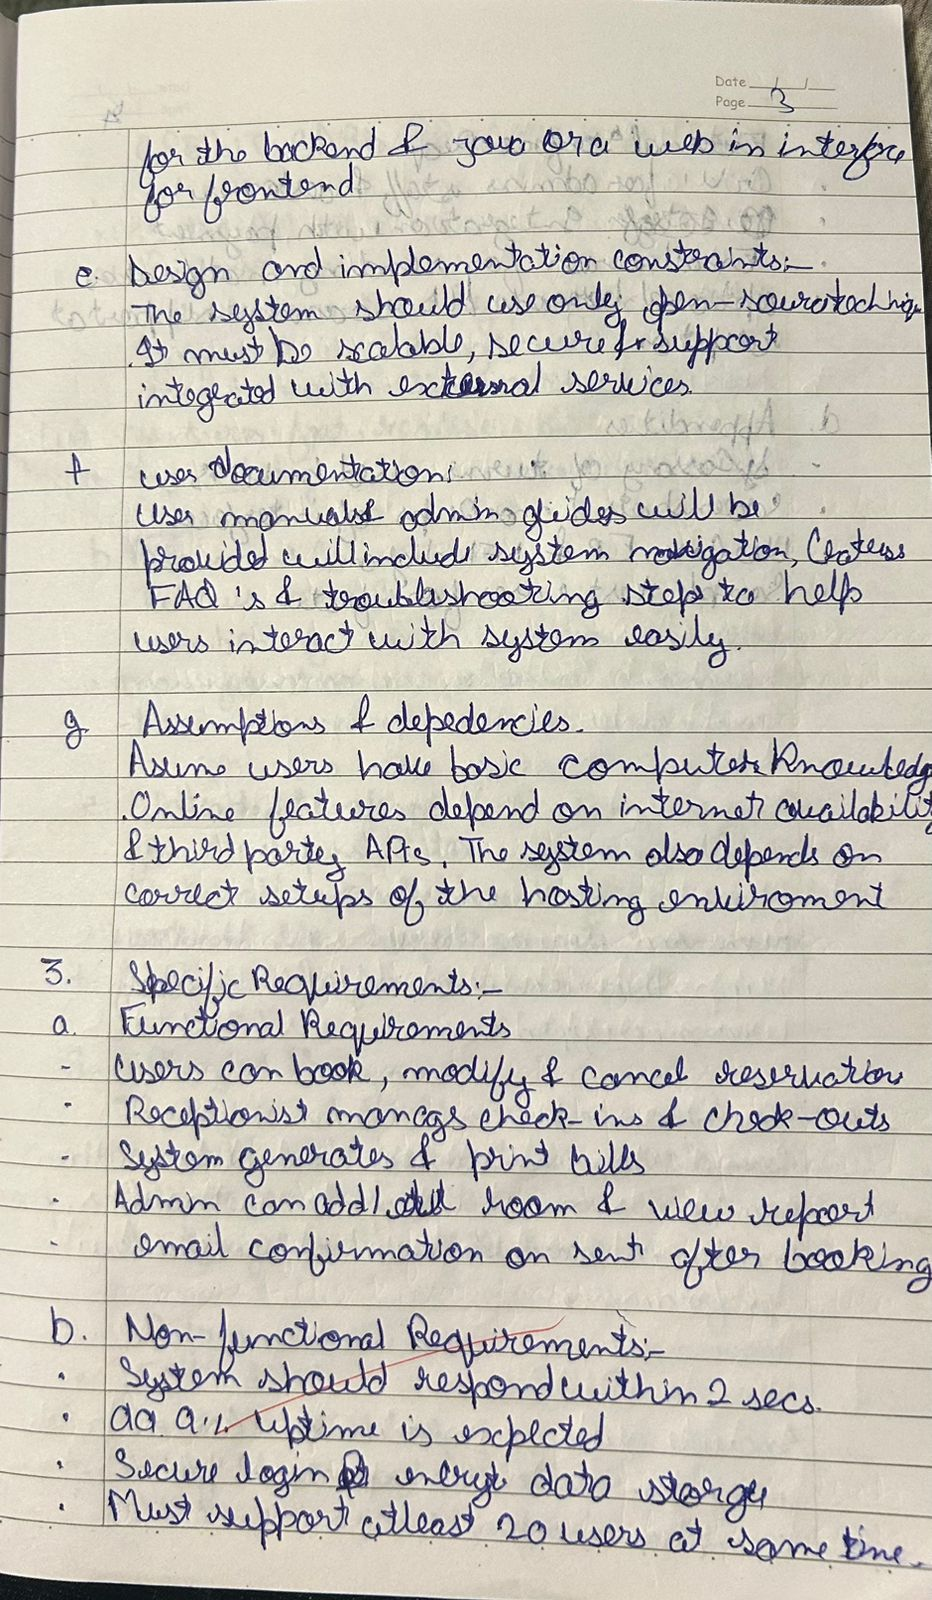 Date
Page 3
for the backend & java or a web in interface
for frontend
e. Design and implementation constraints:-
The system should use only open-source
It must be scalable, secure & support
integrated with external services.
f User documentation:
User manuals & admin guides will be
provided will include system navigation,
FAQ's & troubleshooting steps to help
users interact with system easily.
g Assumptions & depedencies.
Assume users have basic computer Knowledg
Online features depend on internet availability
& third party APIs. The system also depends on
correct setups of the hosting enviroment
3. Specific Requirements:-
a. Functional Requirements
- Users can book, modify & cancel reservation
- Receptionist manags check-ins & check-outs
- System generates & print bills
- Admin can add/ room & view report
- email confirmation on sent after booking
b. Non-functional Requirements:-
. System should respond within 2 secs.
. 99.9% uptime is expected
. Secure login encrypt data storge
. Must support atleast 20 users at same time.